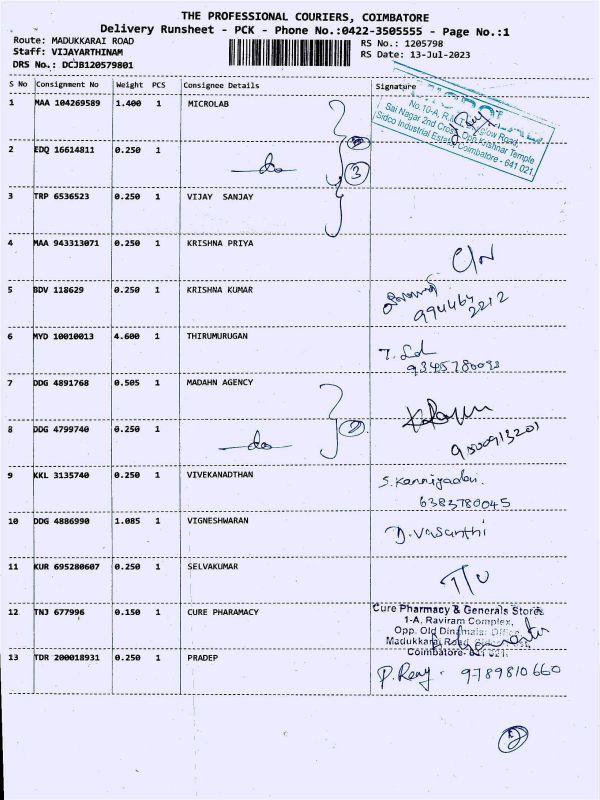 THE PROFESSIONAL COURIERS, COIMBATORE
Delivery Runsheet - PCK - Phone No.:0422-3505555 - Page No.:1
Route: MADUKKARAI ROAD RS No.: 1205798
Staff: VIJAYARTHINAM RS Date: 13-Jul-2023
DRS No.: DCJB120579801
S No Consignment No Weight PCS Consignee Details Signature
1 MAA 104269589 1.400 1 MICROLAB
No.10-A, Road,
Sai Nagar 2nd Cross, Opp. Krishnar Temple
Sidco Industrial Estate, Coimbatore - 641 021
2 EDQ 16614811 0.250 1 do 3
3 TRP 6536523 0.250 1 VIJAY SANJAY
4 MAA 943313071 0.250 1 KRISHNA PRIYA
5 BDV 118629 0.250 1 KRISHNA KUMAR
994464
2212
6 MYD 10010013 4.600 1 THIRUMURUGAN
9345780093
7 DDG 4891768 0.505 1 MADAHN AGENCY
8 DDG 4799740 0.250 1 do 2
9500913201
9 KKL 3135740 0.250 1 VIVEKANADTHAN
6383780045
10 DDG 4886990 1.085 1 VIGNESHWARAN D. Vasanthi
11 KUR 695280607 0.250 1 SELVAKUMAR
12 TNJ 677996 0.150 1 CURE PHARAMACY
Cure Pharmacy & Generals Stores
1-A, Raviram Complex,
Opp. Old Dinamalar Office,
Madukkarai Road,
Coimbatore- 641 021.
13 TDR 200018931 0.250 1 PRADEP
9789810660